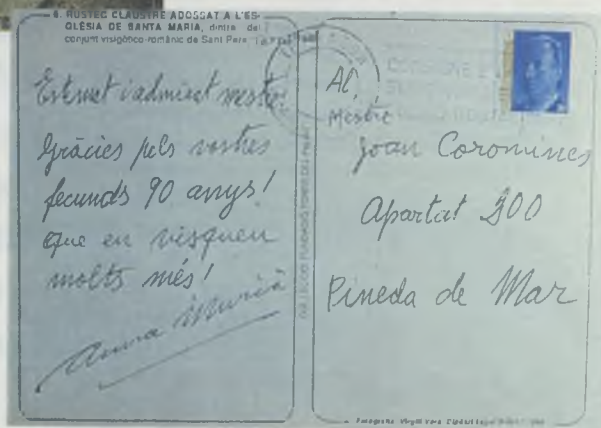 6. RÚSTEC CLAUSTRE ADOSSAT A L'ES-
GLÉSIA DE SANTA MARIA, dintre del
conjunt visigòtico-romànic de Sant Pere.
Estimat i admirat mestre:
Gràcies pels vostres
fecunds 90 anys!
Que en visquem
molts més!
Anna Murià
Al
Mestre
Joan Coromines
Apartat 300
Pineda de Mar